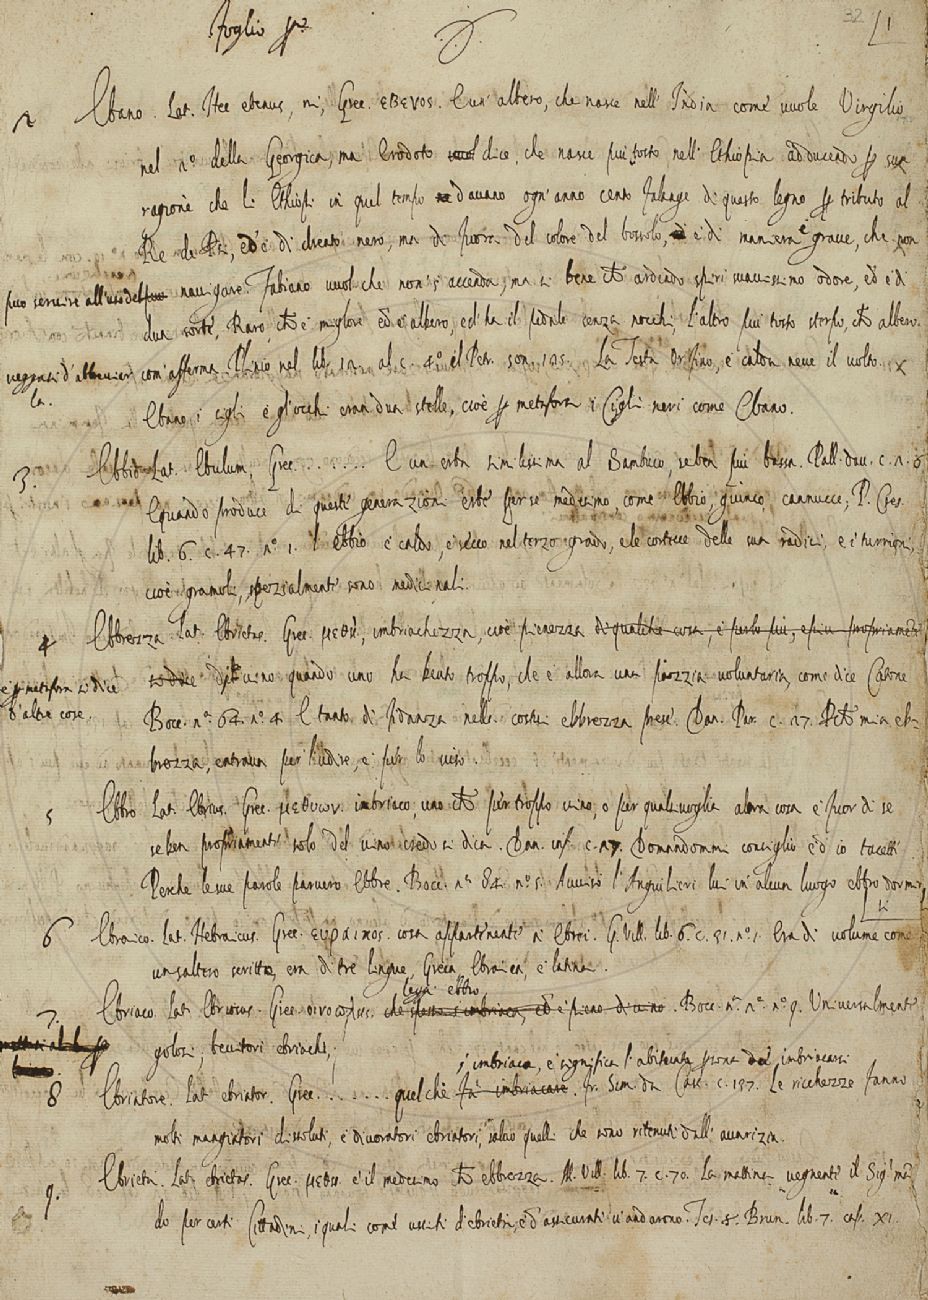 Foglio pr.º
32 1
2 Ebano. Lat. Hec ebenus, ni, Grec. εβενος. E un' albero, che nasce nell' India come vuole Virgilio
nel 2º della Georgica, ma Erodoto dice, che nasce piu tosto nell' Ethiopia adducendo p sua
ragione che li Ethiopi in quel tempo davano ogn' anno cento falange di questo legno p tributo al
Re de Psi, ed è di dreato nero, ma di fuora del colore del bossolo, e è di maniera grave, che non
puo servire all'uso del navigare. Fabiano vuol che non s'accenda, ma si bene che ardendo spiri suavissimo odore, ed è di
dua sorte, Raro, che è miglore ed è albero, ed ha il pedale senza nocchi, l'altro piu tosto sterpo, che albero.
veggasi d'abbreviar com' afferma Plinio nel lib. 12. al c. 4º el Petr. son. 125. La Testa Or fino, e calda neve il volto. X
la. Ebano i cigli e gl' occhi eran dua stelle, cioè p metafora i Cigli neri come Ebano.
3. Ebbio Lat. Ebulum, Grec. . . . . . . E un erba similissima al Sambuco, seben piu bassa. Pall. dav. c. 2. 6
E quando produce di queste generazioni erbe per se medesimo, come Ebbio, giunco, cannucce, P. Cres.
lib. 6. c. 47. nº 1. l' ebbio è caldo, e secco nel terzo grado, e le cortecce delle sua radici, e i turrigni,
cioè i gramoli, spezialmente sono medicinali.
4 Ebbrezza Lat. Ebrietas. Grec. μεθη, imbriachezza, cioè pienezza di qualche cosa, e parlo più, e piu propriamente
e p metafora si dice si dice di vino quando uno ha beuto troppo, che è allora una pazzia voluntaria, come dice Catone
d'altre cose. Bocc. nº 64. nº 4 E tanta di fidanza nella costui ebbrezza prese. Dan. Par. c. 27. Perche mia eb-
brezza, entrava per l'udire, e per lo viso.
5 Ebbro Lat. Ebrius. Grec. μεθυων. imbriaco, uno che per troppo vino, o per qualsivoglia altra cosa è fuor di se
seben propriamente solo del vino credo si dica. Dan. inf. c. 27. Domandommi consiglio ed io tacetti
Perche le sue parole parvero Ebbre. Bocc. nº 84. nº 5. Avvisò l'Anguilieri lui in alcun luogo ebbro dormi
6 Ebraico. Lat. Hebraicus. Grec. ευραικος. cosa appartenente a Ebrei. G. Vill. lib. 6. c. 91. nº 1. Era di volume come
un saltero scritto, era di tre lingue, Greca Ebraica, e latina.
leggi ebbro,
7. Ebriaco. Lat. Ebriosus. Grec. che spesso s'imbriaca, ed è pieno di vino. Bocc. nº 2º nº 9. Universalmente
golosi, bevitori ebriachi,
s'imbriaca, e significa l'abituata psona ad imbriacarsi
8 Ebriatore. Lat. ebriator. Grec. . . . . . . quel chè fà imbriacare. Fr. Sim. da Casc. c. 137. Le ricchezze fanno
molti mangiatori dissoluti, e divoratori ebriatori, salvo quelli che sono ritenuti dall' avarizia.
9. Ebrieta. Lat. ebrietas. Grec. μεθη. è il medesimo che ebbrezza. M. Vill. lib. 7. c. 70. La mattina vegnente il Sig' ma
dò per certi Cittadini, i quali come usciti d'ebrieta, ed assicurati vi andarono. Tes. S. Brun. lib. 7. cap. XI.